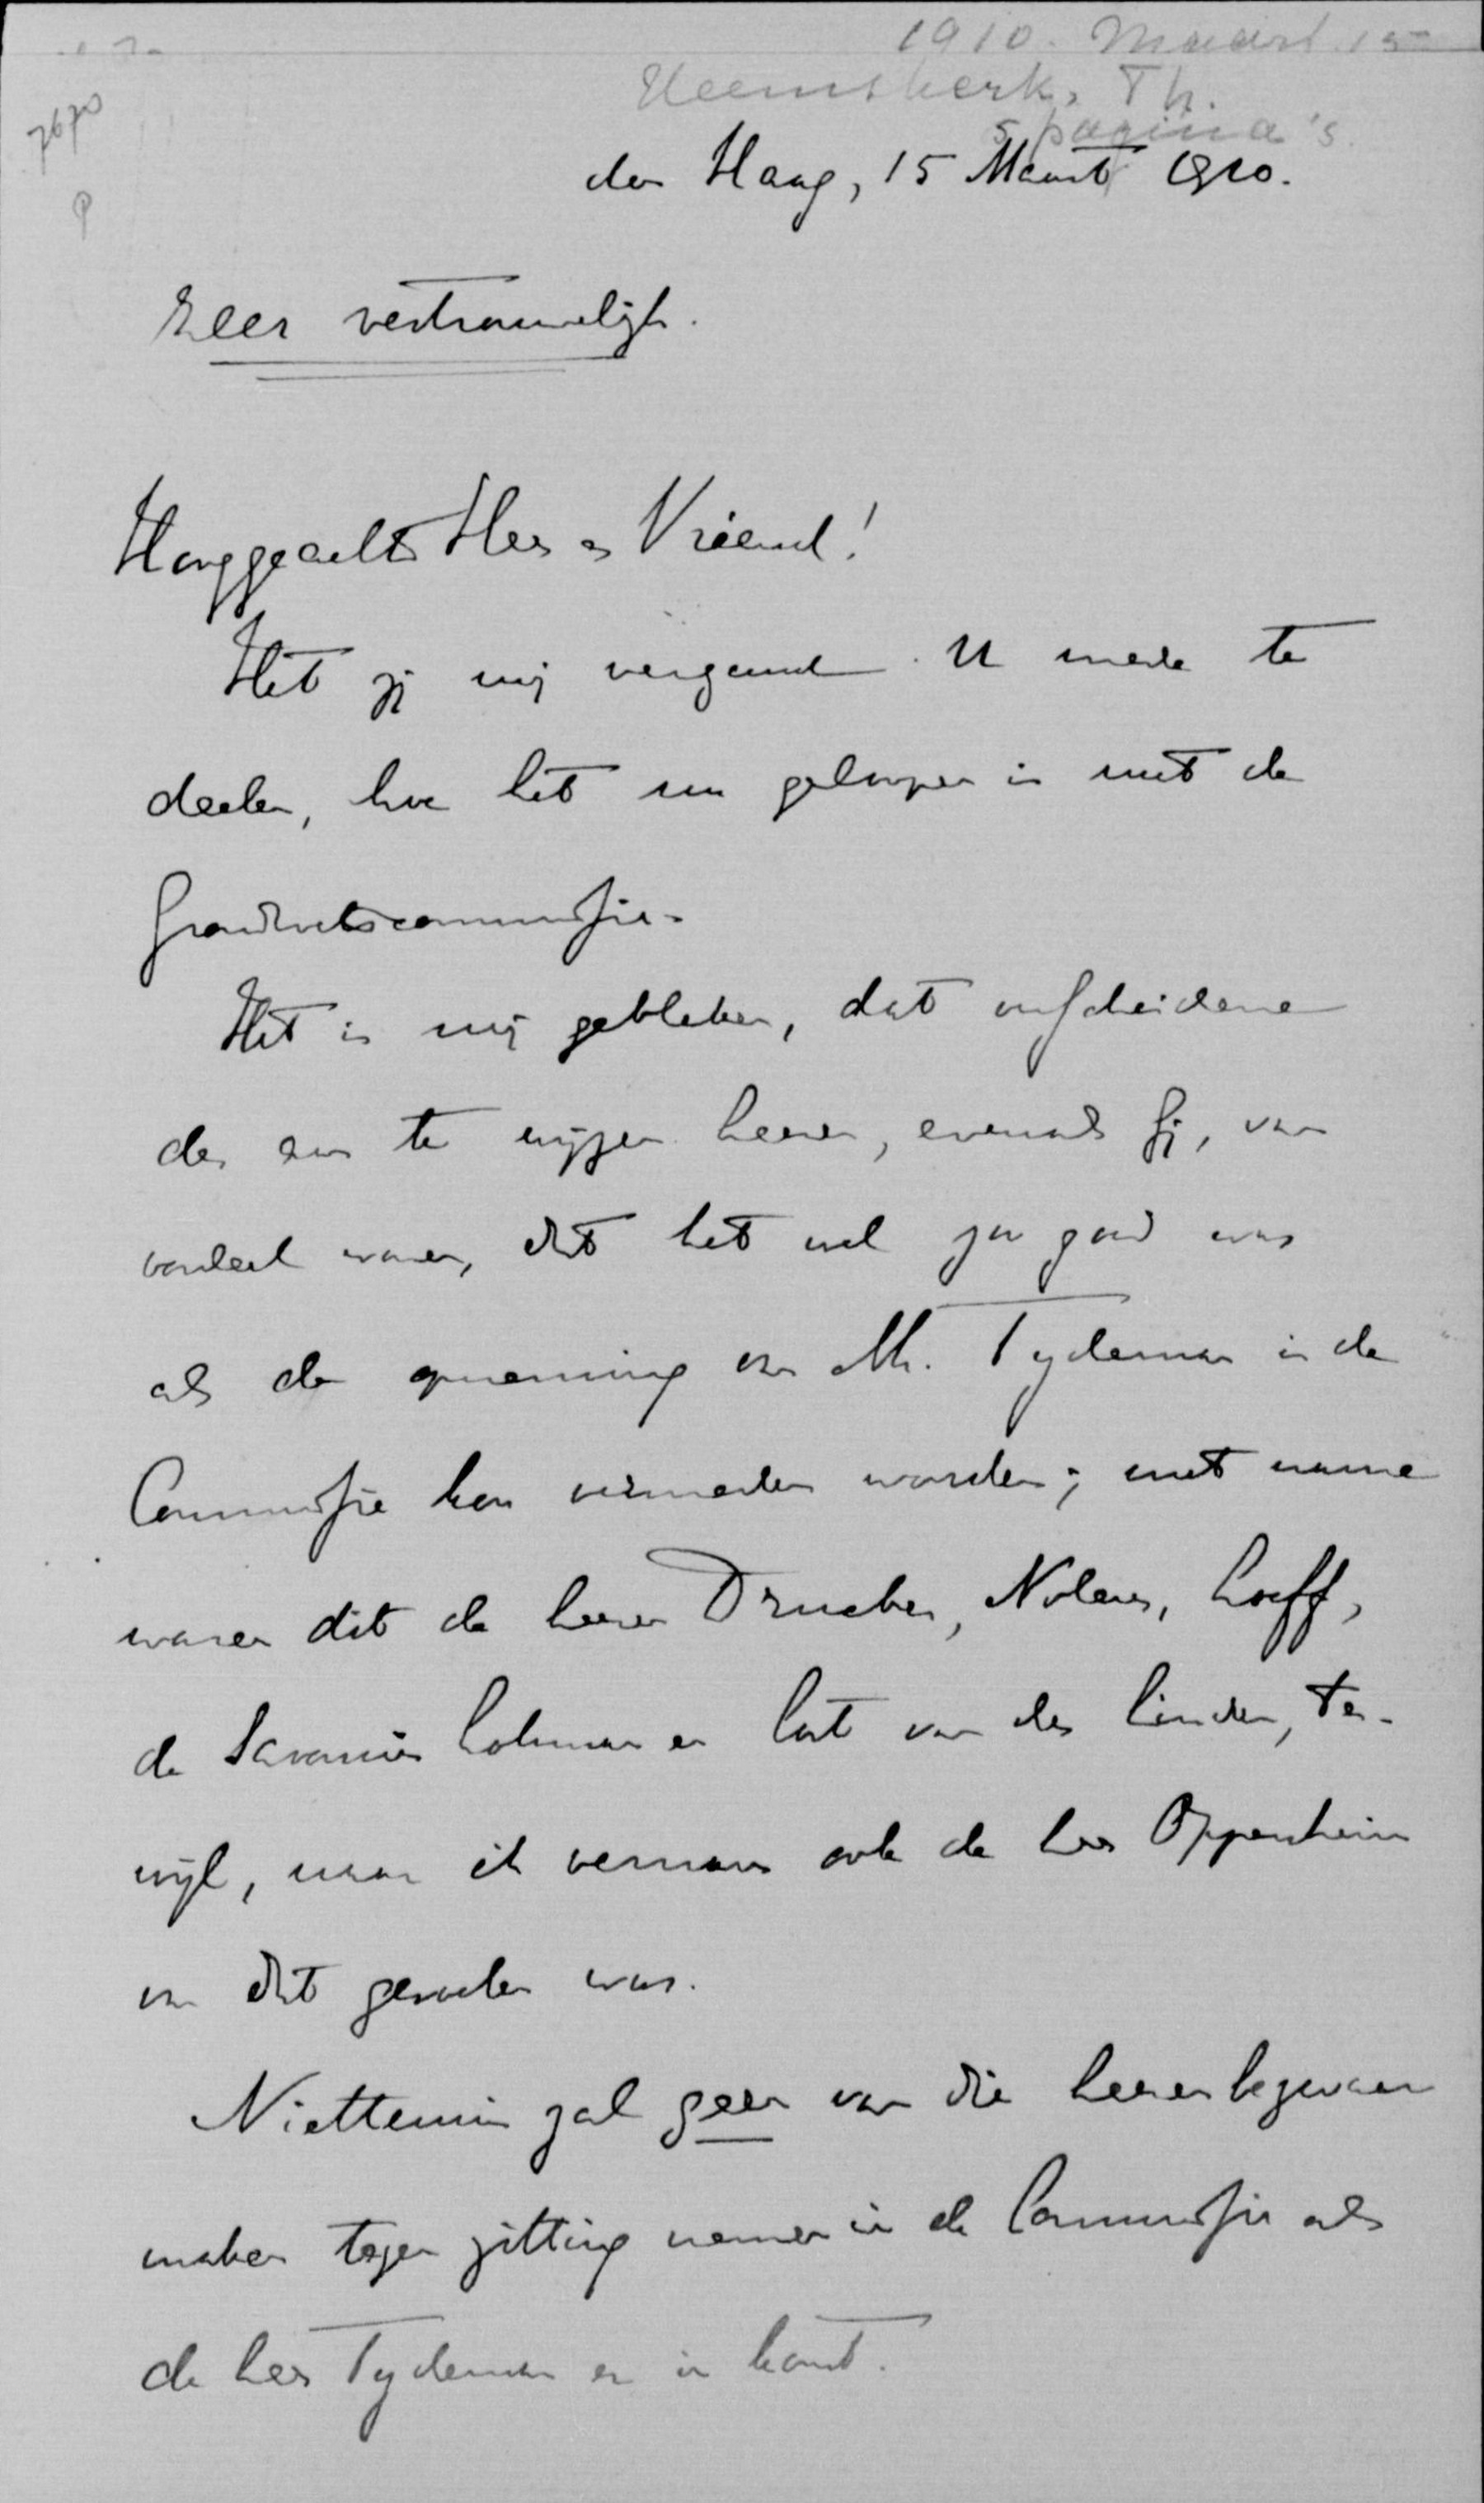 1910. Maart 15
Heemskerk, Th.
5 pagina's.
7670
den Haag, 15 Maart 1910.
Zeer vertrouwelijk.
Hooggeachte Heer en Vriend!
Het zij mij vergund U mede te
deelen, hoe het nu geloopen is met de
Grondwetscommissie.
Het is mij gebleken, dat verscheidene
der aan te wijzen heeren, evenals gij, van
oordeel waren, dat het wel zoo goed was
als de opneming van Mr. Tydeman in de
Commissie kon vermeden worden; met name
waren dit de heeren Drucker, Nolens, Loeff,
de Savornin Lohman en Cort van der Linden, ter-
wijl, naar ik vernam ook de heer Oppenheim
van dat gevoelen was.
Niettemin zal geen van die heeren bezwaar
maken tegen zitting nemen in de Commissie als
de heer Tydeman er in komt.